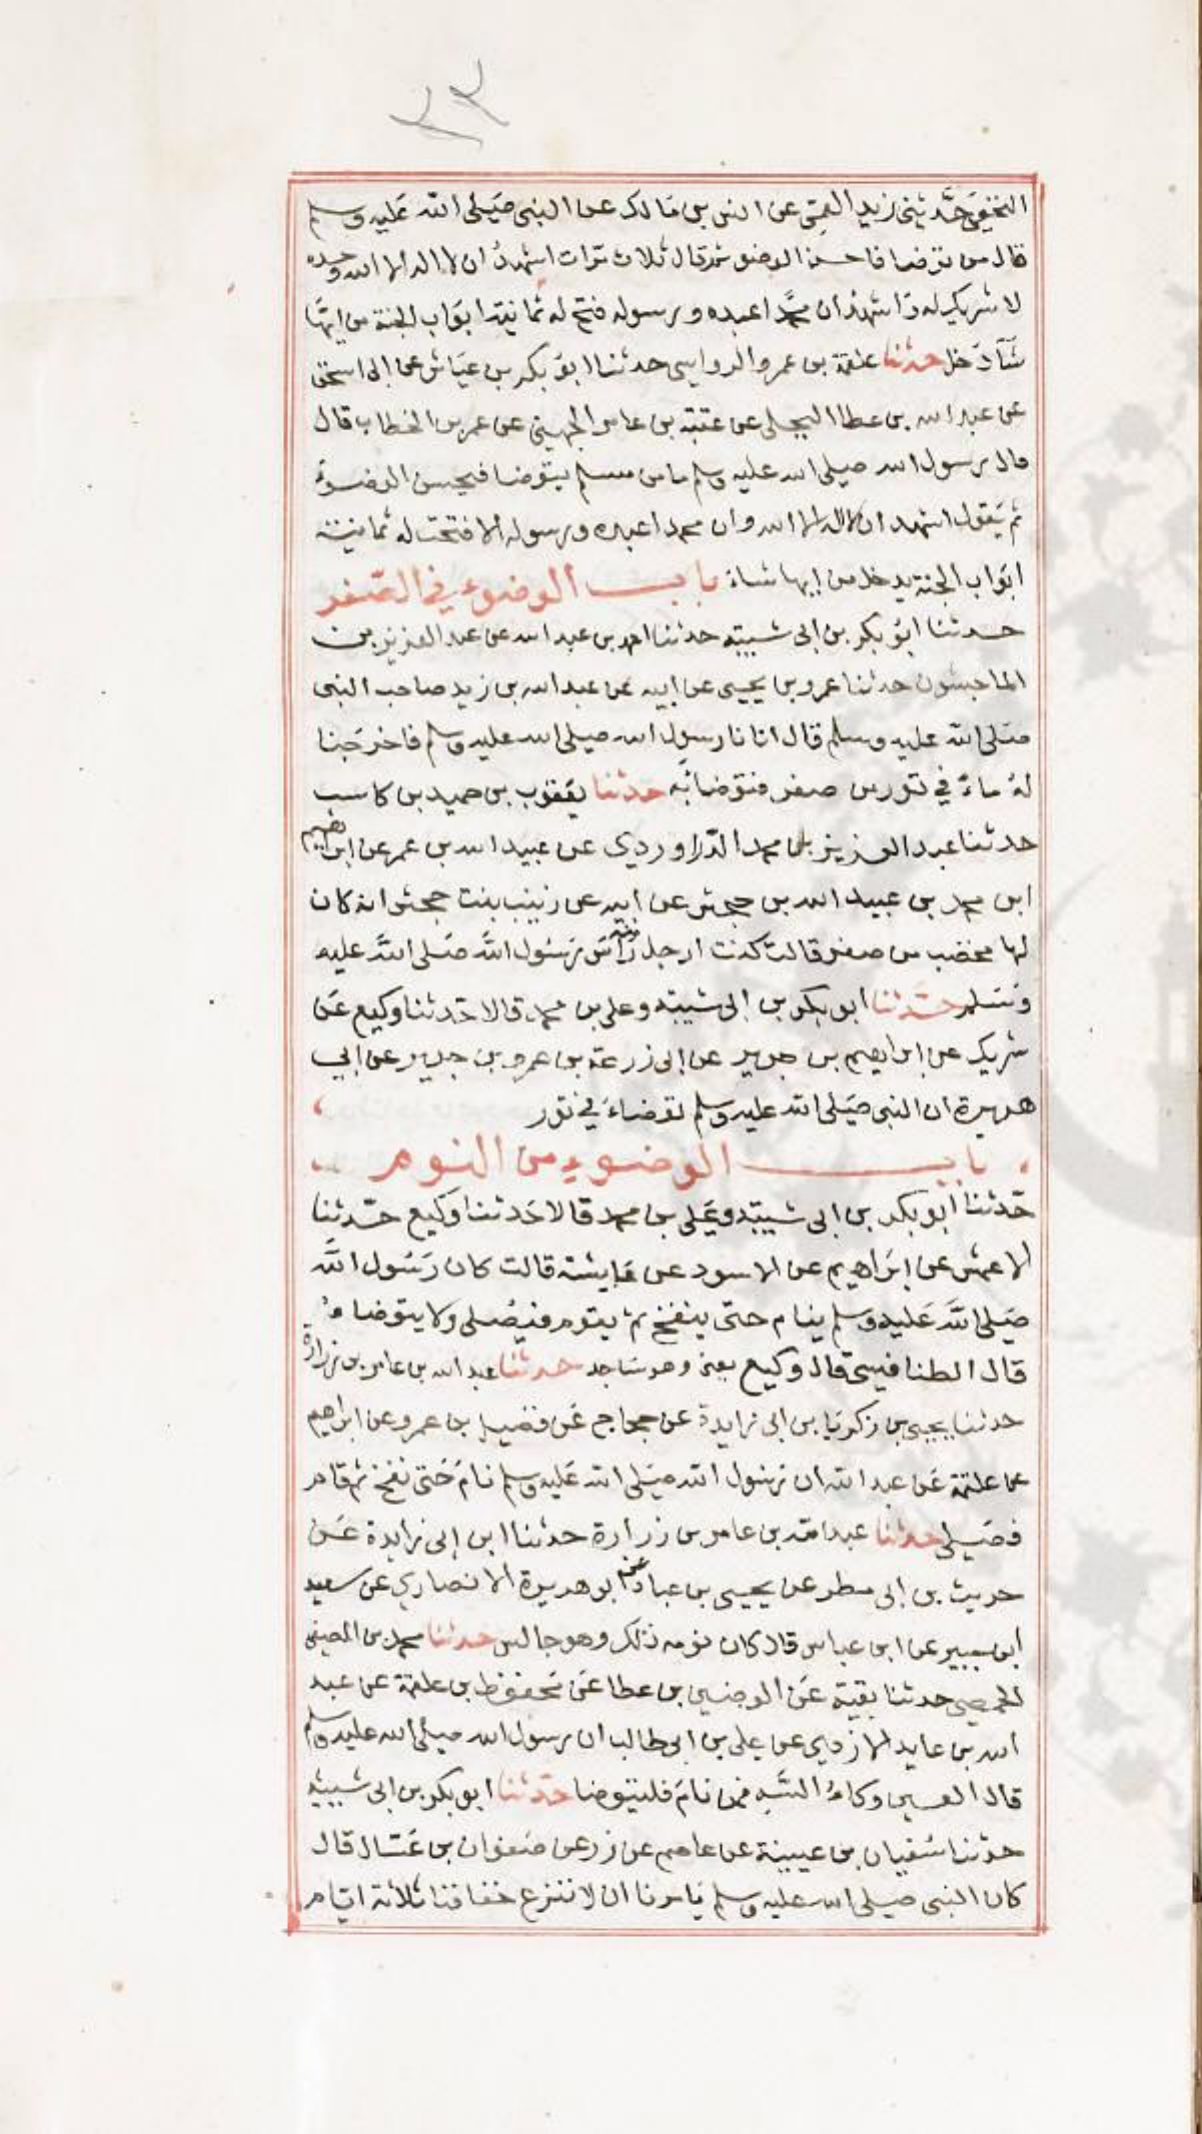 ٣٣
النخعي حدثني زيد العمي عن انس بن مالك عن النبي صَلى الله عَليه وسلم
قال من توضا فاحسن الوضو ثم قال ثلاث مَرات اشهدُ ان لا اله الا الله وحده
لا شريك له وَاشهدُ ان محمَّدا عبده ورسوله فتح له ثمانية ابوَاب الجنة من ايهَا
شَآ دَخل حدثنا علقمة بن عمرو الدواسي حدثنا ابو بَكر بن عيَاش عن ابى اسحق
عن عبد الله بن عطا البجلى عن عقبة بن عامر الجهيني عن عمر بن الخطاب قال
قال رسول الله صلى الله عليه وسلم ما من مسلم يتوضا فيحسن الوضوءُ
ثم يَقول اشهد ان لا اله الا الله وان محمدا عبده ورسوله الا فتحت له ثمانية
ابوَاب الجنة يدخل من ايها شاءَ باب الوضوء في الصّفر
حدثنا ابوُ بكر بن ابى شيبة حدثنا احمد بن عبد الله عن عبد العزيز بن
الماجشون حدثنا عمرو بن يحيى عن ابيه عن عبد الله بن زيد صاحب النبى
صَلى الله عليه وسلم قال اتانا رسول الله صلى الله عليه وسلم فاخرَجنا
لهُ ماءً في تور من صفر فتوضا به حدثنا يعَقوب بن حميد بن كاسب
حدثنا عبد العزيز بن محمد الدّراوردي عن عبيد الله بن عمر عن ابراهيم
ابن محمد بن عبيد الله بن جحش عن ابيه عن زينب بنت جحش انه كان
لها مخضب من صفر قالت كنت ارجل رَأسَ رَسُول اللَّه صَلى اللَّه عليه
وسَلم حدَّثنا ابو بكر بن ابى شيبة وعلى بن محمد قالا حَدثنا وكيع عَن
شريك عن ابراهيم بن جرير عن ابى زرعة بن عمرو بن جرير عن ابي
هريرة ان النبى صَلى الله عليه وسلم توضاءَ في تور
باب الوضوء من النوم
حَدثنا ابو بكر بن ابى شيبة وعَلى بن محمد قالا حَدثنا وكيع حدّثنا
الاعمش عن ابرَاهيم عن الاسود عن عَايشة قالت كان رَسُول اللَّه
صَلى اللَّه عَليه وَسلم ينام حتى ينفخ ثم يقوم فيصُلى ولا يتوضاءُ
قال الطنافسى قال وكيع يعنى وهو سَاجد حدثنا عبد الله بن عامر بن زرارة
حدثنا يحيى بن زكريَا بن ابى زايدة عن حجاج عَن فضيل بن عمرو عن ابراهيم
عن علقمة عَن عبد الله ان رَسُول الله صَلى الله عَليه وسلم نامَ حَتى نفخ ثم قام
فصَلى حدثنا عبد الله بن عامر بن زرارة حدثنا ابن ابى زايدة عَن
حريث بن ابى مطر عن يحيى بن عباد عن ابو هريرة الانصاري عن سعيد
ابن جبير عن ابن عباس قال كان نومه ذلك وهو جالس حدثنا محمد بن المصفى
الحمصي حدثنا بقية عَن الوضين بن عطا عَن مَحفوظ بن علقمة عن عبد
الله بن عايد الازدي عن على بن ابى طالب ان رسول الله صلى الله عليه وسلم
قال العين وكاءُ السَّه فمن نامَ فليتوضا حدّثنا ابو بكر بن ابى شيبة
حدثنا سُفيان بن عيينة عن عاصم عن زر عن صَفوان بن عَسّال قال
كان النبى صلى الله عليه وسلم يَامرنا ان لا ننزع خفافنا ثلاثة ايّام